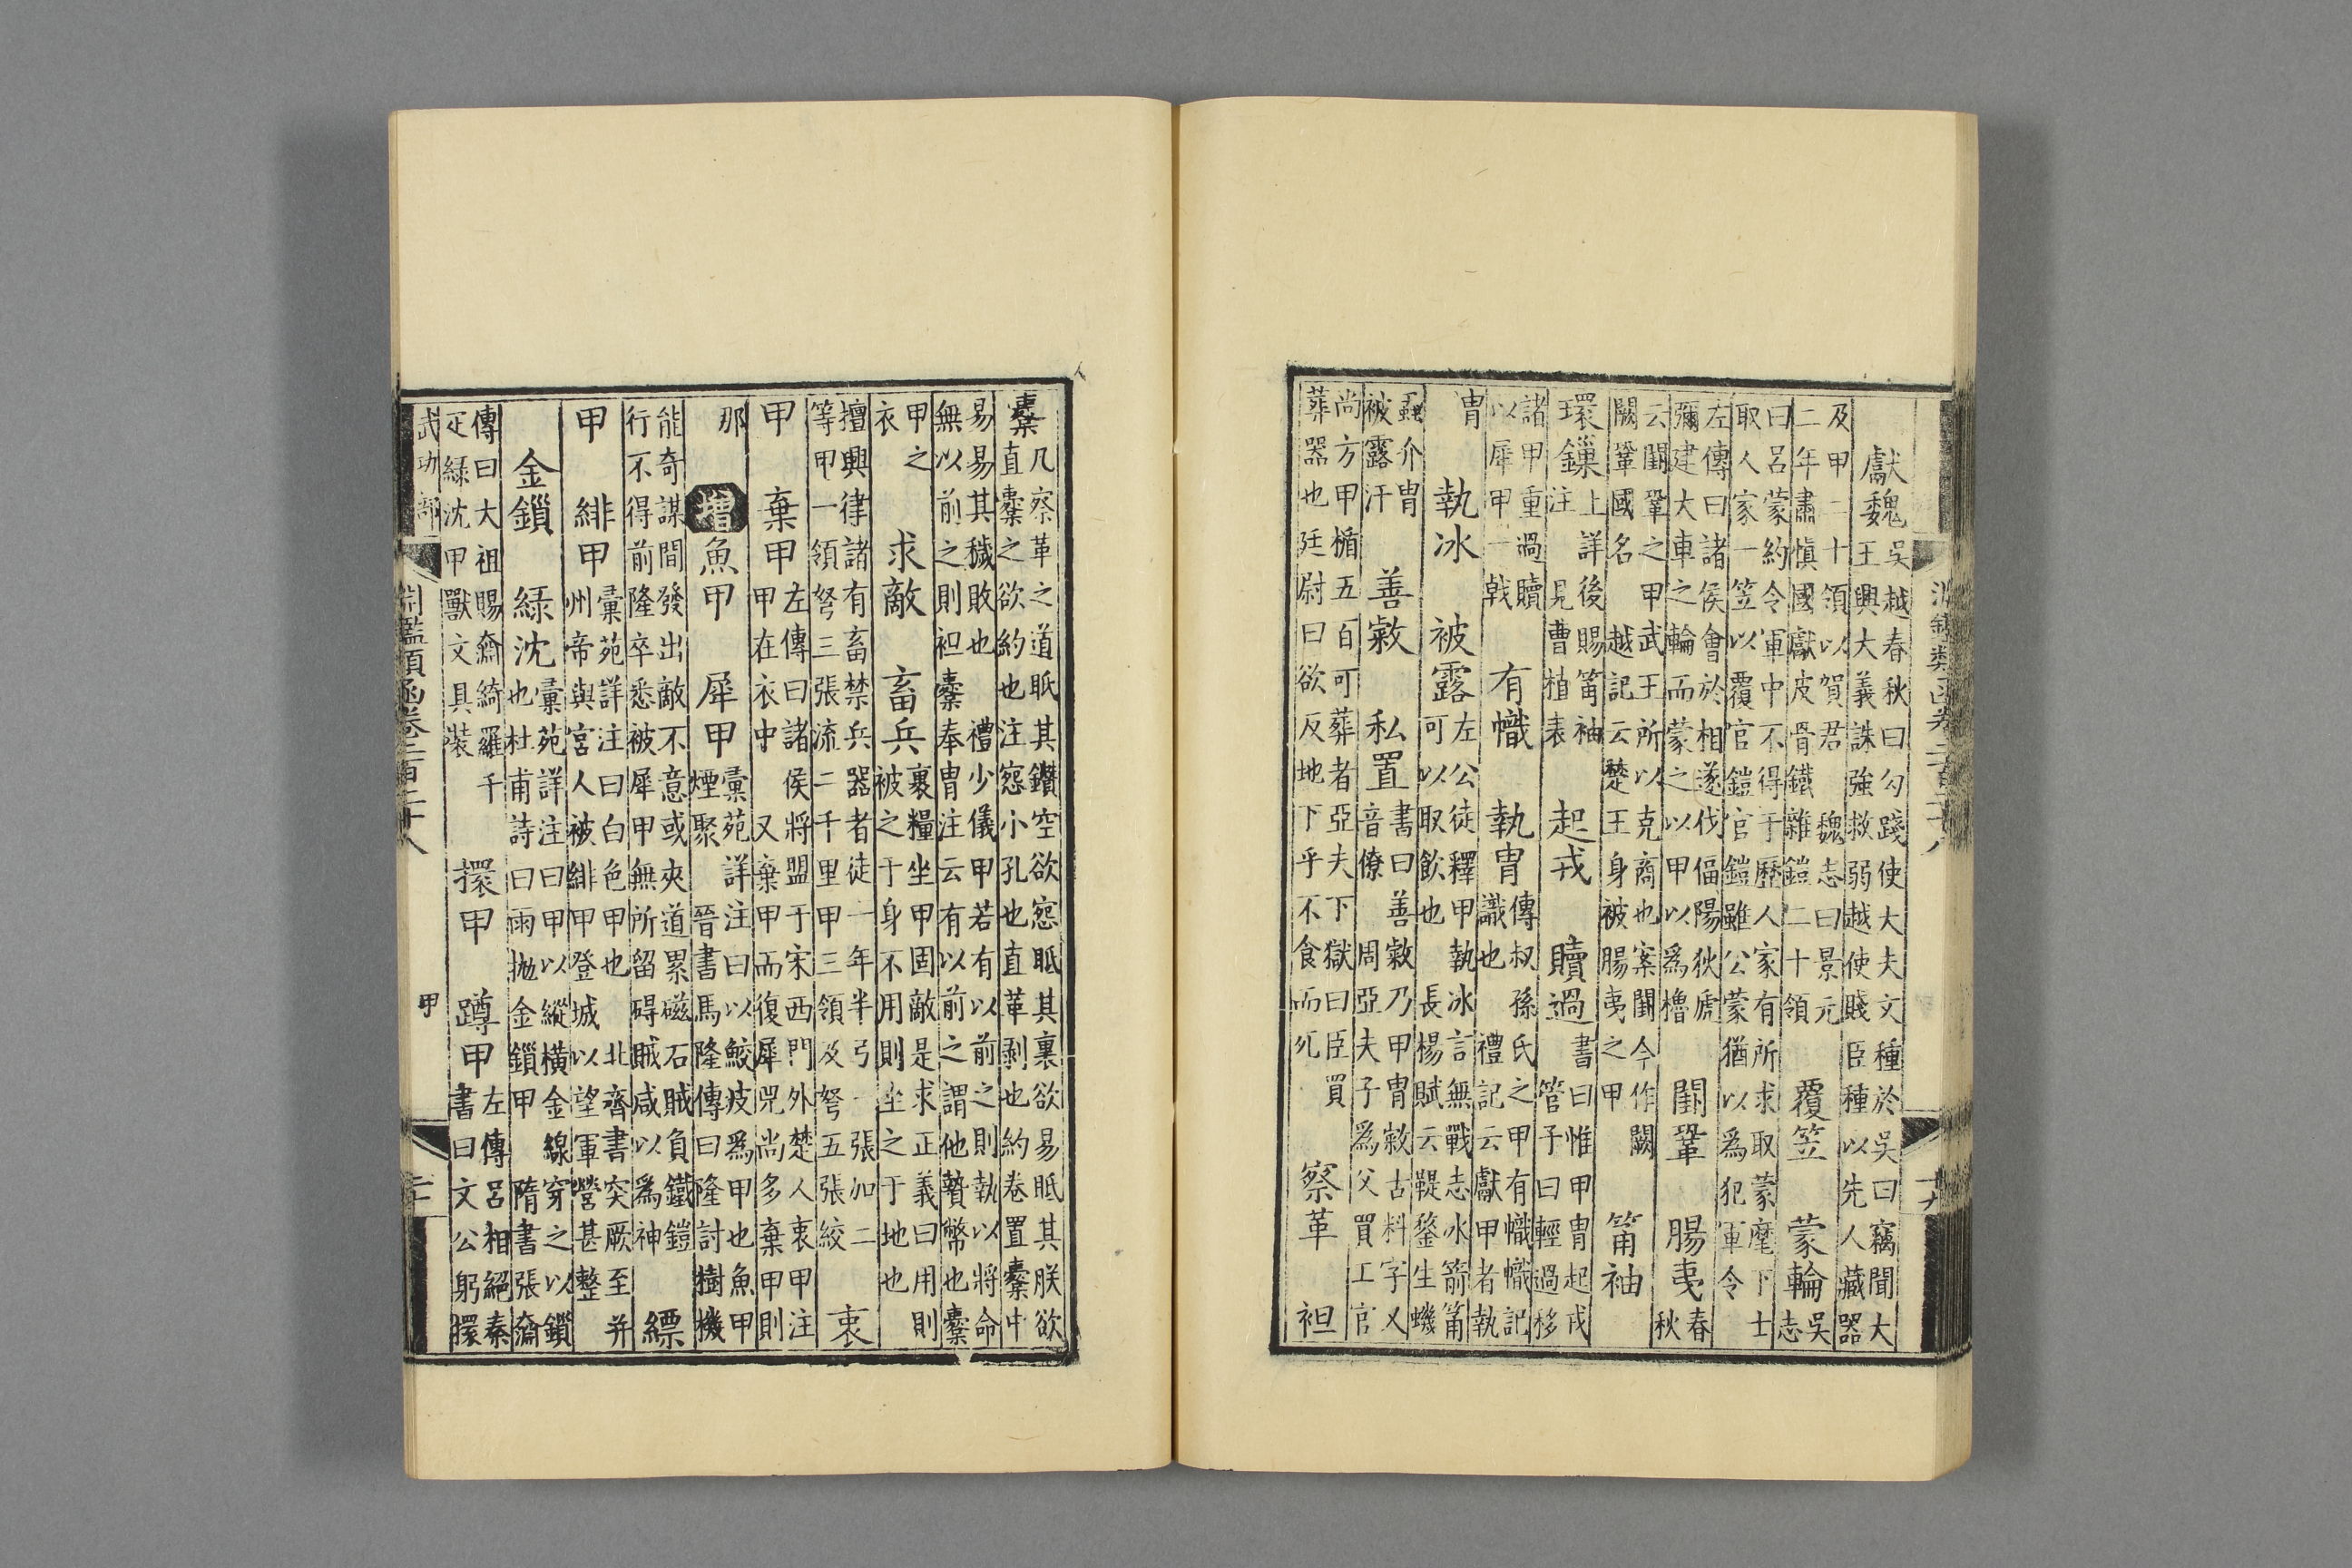 淵鑑類函卷二百二十八
十九
獻魏
吳越春秋曰勾踐使大夫文種於吳曰竊聞大
王興大義誅強救弱越使賤臣種以先人藏器
及甲二十領以賀君　魏志曰景元
二年肅慎國獻皮骨鐵雜鎧二十領
覆笠　蒙輪
吳志
曰呂蒙約令軍中不得干歷人家有所求取蒙麾下士
取人家一笠以覆官鎧官鎧雖公蒙猶以爲犯軍令
左傳曰諸侯會於相遂伐偪陽狄虒
彌建大車之輪而蒙之以甲以爲櫓
閵鞏　腸夷
春秋
云閵鞏之甲武王所以克商也案閵今作闕
闕鞏國名　越記云楚王身被腸夷之甲
筩袖
環鏁
上詳後賜筩袖
注見曹植表
起戎　贖過
書曰惟甲冑起戎
管子曰輕過移
諸甲重過贖
以犀甲一戟
有幟　執冑
傳叔孫氏之甲有幟幟記
識也　禮記云獻甲者執
冑
執冰　被露
左公徒釋甲執冰言無戰志冰箭筩
可以取飲也　長楊賦云鞮鍪生蟣
蝨介冑
被露汗
善敹　私置
書曰善敹乃甲冑敹古料字又
音僚　周亞夫子爲父買工官
尚方甲楯五百可葬者亞夫下獄曰臣買
葬器也廷尉曰欲反地下乎不食而死
察革　袒
櫜
凡察革之道眡其鑽空欲窓眡其裏欲易眡其朕欲
直櫜之欲約也注窓小孔也直革剥也約卷置櫜中
易易其穢敗也　禮少儀甲若有以前之則執以將命
無以前之則袒櫜奉冑注云有以前之謂他贄幣也櫜
甲之
衣
求敵　畜兵
裹糧坐甲固敵是求正義曰用則
被之于身不用則坐之于地也
擅興律諸有畜禁兵器者徒一年半弓一張加二
等甲一領弩三張流二千里甲三領及弩五張絞
衷
甲　棄甲
左傳曰諸侯將盟于宋西門外楚人衷甲注
甲在衣中　又棄甲而復犀兕尚多棄甲則
那
增
魚甲　犀甲
彙苑詳注曰以鮫皮爲甲也魚甲
煙聚　晉書馬隆傳曰隆討樹機
能奇謀間發出敵不意或夾道累磁石賊負鐵鎧
行不得前隆卒悉被犀甲無所留碍賊咸以爲神
縹
甲　緋甲
彙苑詳注曰白色甲也　北齊書突厥至并
州帝與宮人被緋甲登城以望軍營甚整
金鎖　綠沈
彙苑詳注曰甲以縱橫金線穿之以鎖
也杜甫詩曰雨抛金鎖甲　隋書張奫
傳曰大祖賜奫綺羅千
疋綠沈甲獸文具裝
擐甲　蹲甲
左傳呂相絕秦
書曰文公躬擐
武功部
淵鑑類函卷二百二十八
甲
二十